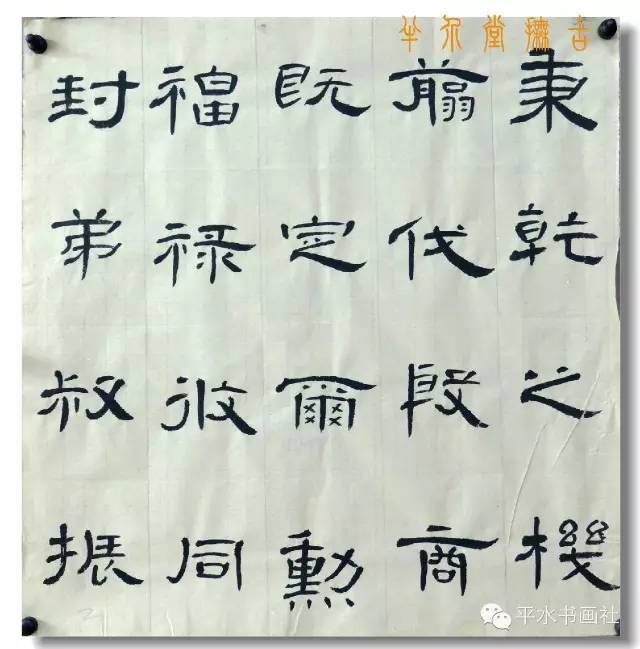 秉乾之機
翦伐殷商
既定爾勳
福祿攸同
封弟叔振
平水书画社